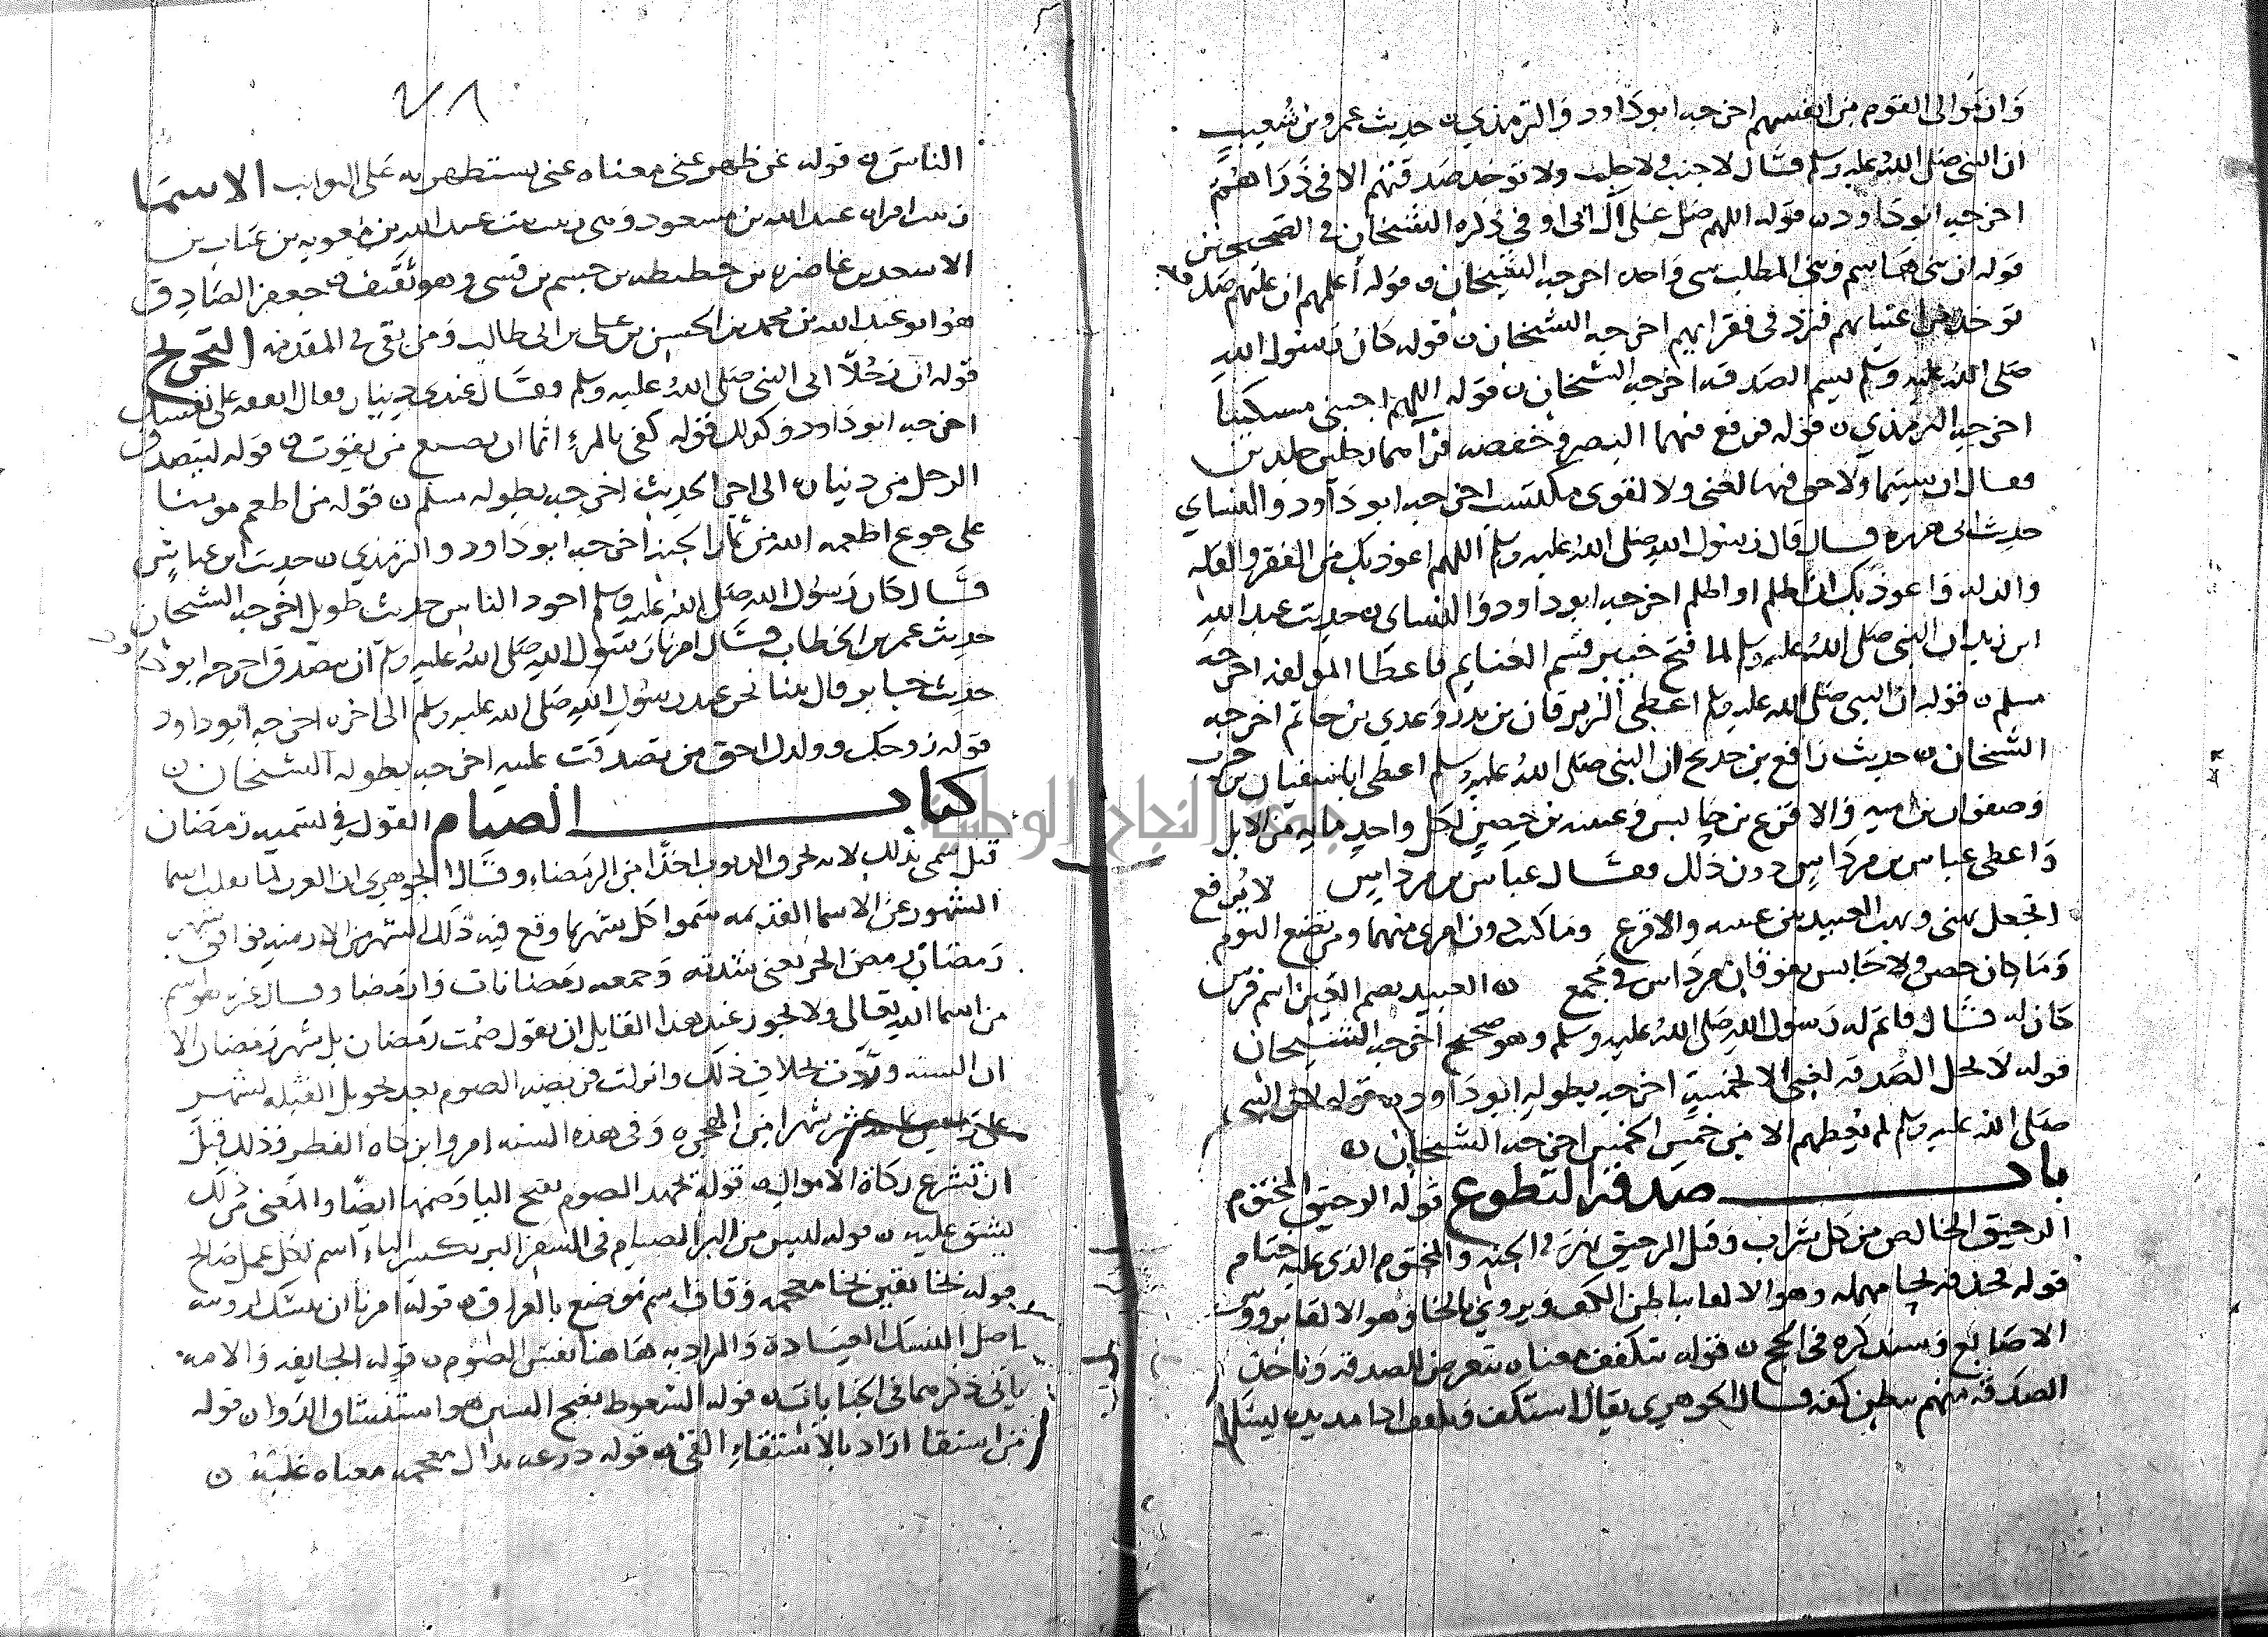 وان موالى القوم من انفسهم اخرجه ابو داود والترمذي ں حديث عمرو بن شعيب
ان النبى صلى الله عليه وسلم قال لا جنب ولا جلب ولا توخد صدقتهم الا فى دراهم
اخرجه ابو داود ں قوله اللهم صل على ال ابى اوفى ذكره الشيخان فى الصحيحين
قوله ان بنى هاشم وبنى المطلب شى واحد اخرجه الشيخان ں قوله أعلمهم ان عليهم صدقه
توخد من اغنيايهم فترد فى فقرايهم اخرجه الشيخان ں قوله كان رسول الله
صلى الله عليه وسلم يسم الصدقه اخرجه الشيخان ں قوله اللهم احينى مسكينا
اخرجه الترمذي ں قوله فرفع فيهما البصر وخفضه فراهما رجلين جلدين
فقال ان شيتما ولا حق فيها لغنى ولا لقوى مكتسب اخرجه ابو داود والنساي
حديث ابى هريره قال قال رسول الله صلى الله عليه وسلم اللهم اعوذ بك من الفقر والقله
والذله واعوذ بك ان اظلم او اظلم اخرجه ابو داود والنساى ں حديث عبد الله
ابن زيد ان النبى صلى الله عليه وسلم لما فتح خيبر قسم الغنايم فاعطا المولفه اخرجه
مسلم ں قوله ان النبى صلى الله عليه وسلم اعطى الزبرقان بن بدر وعدي بن حاتم اخرجه
الشيخان ں حديث رافع بن خديج ان النبى صلى الله عليه وسلم اعطى ابا سفيان بن حرب
وصفوان بن اميه والاقرع بن حابس وعيينه بن حصين لكل واحد مايه من الابل
واعطى عباس بن مرداس دون ذلك فقال عباس بن مرداس لا يرفع
اتجعل نهبى ونهب العبيد بين عيينه والاقرع وما كنت دون امرى منهما ومن تضع اليوم
وما كان حصن ولا حابس يفوقان مرداس فى مجمع ں العبيد بضم العين اسم فرس
كان له قال فاتم له رسول الله صلى الله عليه وسلم وهو صحيح اخرجه الشيخان
قوله لا تحل الصدقه لغنى الا لخمسة اخرجه بطوله ابو داود ں قوله لان النبى
صلى الله عليه وسلم لم يعطهم الا من خمس الخمس اخرجه الشيخان ں
باب صدقة التطوع قوله الرحيق المختوم
الرحيق الخالص من كل شراب وقيل الرحيق نهر فى الجنه والمختوم الذى عليه ختام
قوله محذفه بحا مهمله وهو الالقا بباطن الكف ويروى بالخا وهو الالقا بروس
الاصابع وسنذكره فى الحج ں قوله يتكفف معناه يتعرض للصدقه وياخذ
الصدقة منهم ببطن كفه قال الجوهري يقال استكف وتكفف اذا مد يده ليسل
الناس ں قوله عن ظهر غنى معناه غنى يستظهر به على النوايب الاسما
زينب امراه عبد الله بن مسعود وهى زينب بنت عبد الله بن معويه بن عتاب بن
الاسعد بن غاضره بن حطيطه بن جشم بن قسى وهو ثقيف ں جعفر الصادق
هو ابو عبد الله بن محمد بن الحسين بن على بن ابى طالب ومن بقى فى المقدمه التخريج
قوله ان رجلا اتى النبى صلى الله عليه وسلم فقال عندي دينار فقال انفقه على نفسك
اخرجه ابو داود وكذلك قوله كفى بالمرء اثما ان يضيع من يقوت ں قوله ليتصدق
الرجل من ديناره الى اخر الحديث اخرجه بطوله مسلم ں قوله من اطعم مومنا
على جوع اطعمه الله من ثمار الجنه اخرجه ابو داود والترمذي ں حديث ابن عباس
قال كان رسول الله صلى الله عليه وسلم اجود الناس حديث طويل اخرجه الشيخان
حديث عمر بن الخطاب قال امرنا رسول الله صلى الله عليه وسلم ان نتصدق اخرجه ابو داود
حديث جابر قال بينا نحن عند رسول الله صلى الله عليه وسلم الى اخره اخرجه ابو داود
قوله زوجك وولدك احق من تصدقت عليه اخرجه بطوله الشيخان ں
كتاب الصيام القول فى تسميه رمضان
قيل سمى بذلك لانه يحرق الذنوب اخذا من الرمضاء وقال الجوهرى ان العرب لما نقلت اسما
الشهور عن الاسما القديمه سموا كل شهر بما وقع فيه ذلك الشهر من الازمنه فوافق شهر
رمضان رمض الحر يعنى شدته وجمعه رمضانات وارمضا وقال غيره هو اسم
من اسما الله تعالى ولا يجوز عند هذا القايل ان يقول صمت رمضان بل شهر رمضان الا
ان السنه وردت بخلاف ذلك وانزلت فريضه الصوم بعد تحويل القبله بشهر
على راس ثمانيه عشر شهرا من الهجره وفى هذه السنه امروا بزكاه الفطر وذلك قبل
ان تشرع زكاة الاموال ں قوله يجهد الصوم بفتح اليا وضمها ايضا والمعنى من ذلك
يشق عليه ں قوله ليس من البر الصيام فى السفر البر بكسر الباء اسم لكل عمل صالح
قوله بخانقين بخا معجمه وقاف اسم موضع بالعراق ں قوله امرنا ان ننسك لرويته
اصل النسك العبادة والمراد به هاهنا نفس الصوم ں قوله الجايفه والامه
ياتى ذكرهما فى الجنايات ں قوله السعوط بفتح السين هو استنشاق الدوا ں قوله
من استقا اراد بالاستقاء القى ں قوله ذرعه بذال معجمه معناه غلبه ں
جامعة النجاح الوطنية